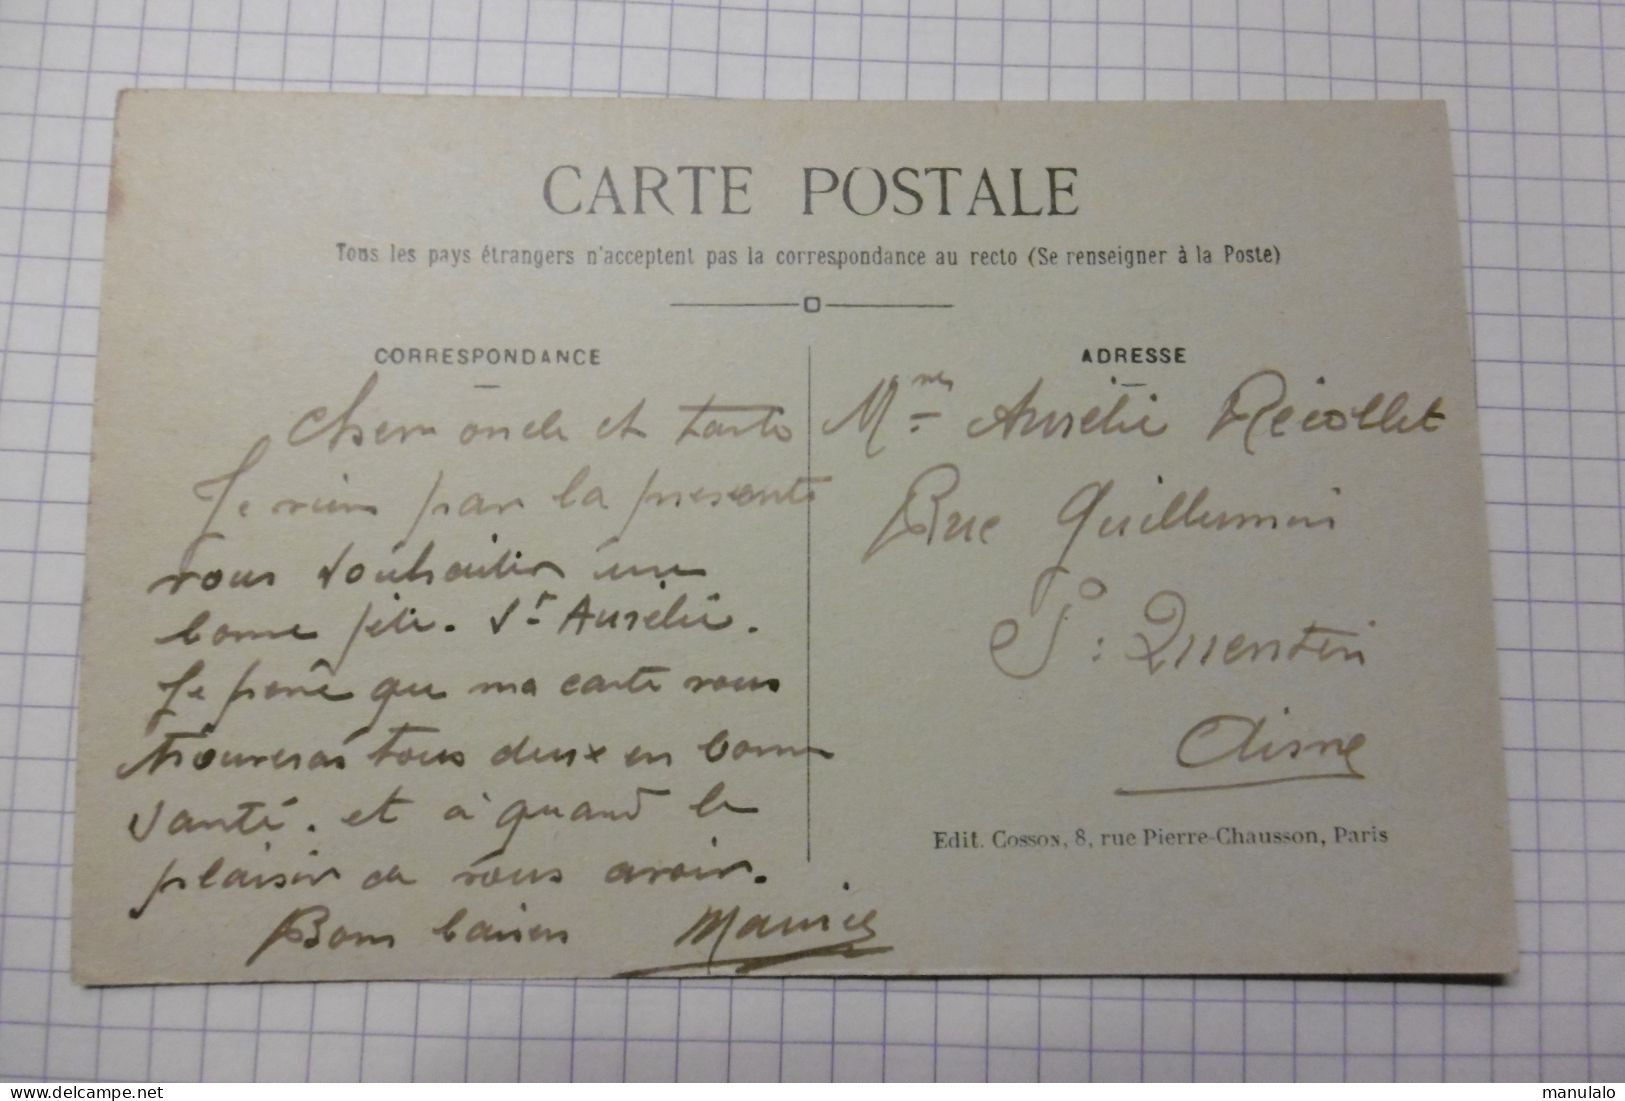 CARTE POSTALE
Tous les pays étrangers n'acceptent pas la correspondance au recto (Se renseigner à la Poste)
CORRESPONDANCE
Cher oncle et tante
Je viens par la presente
vous souhaiter une
bonne fête. St Aurélie.
Je pense que ma carte vous
trouveras tous deux en bonne
santé. et à quand le
plaisir de vous avoir.
Bons baisers Maurice
ADRESSE
Mme Aurélie Récollet
Rue Guillemin
St: Quentin
Aisne
Edit. Cosson, 8, rue Pierre-Chausson, Paris
manulalo